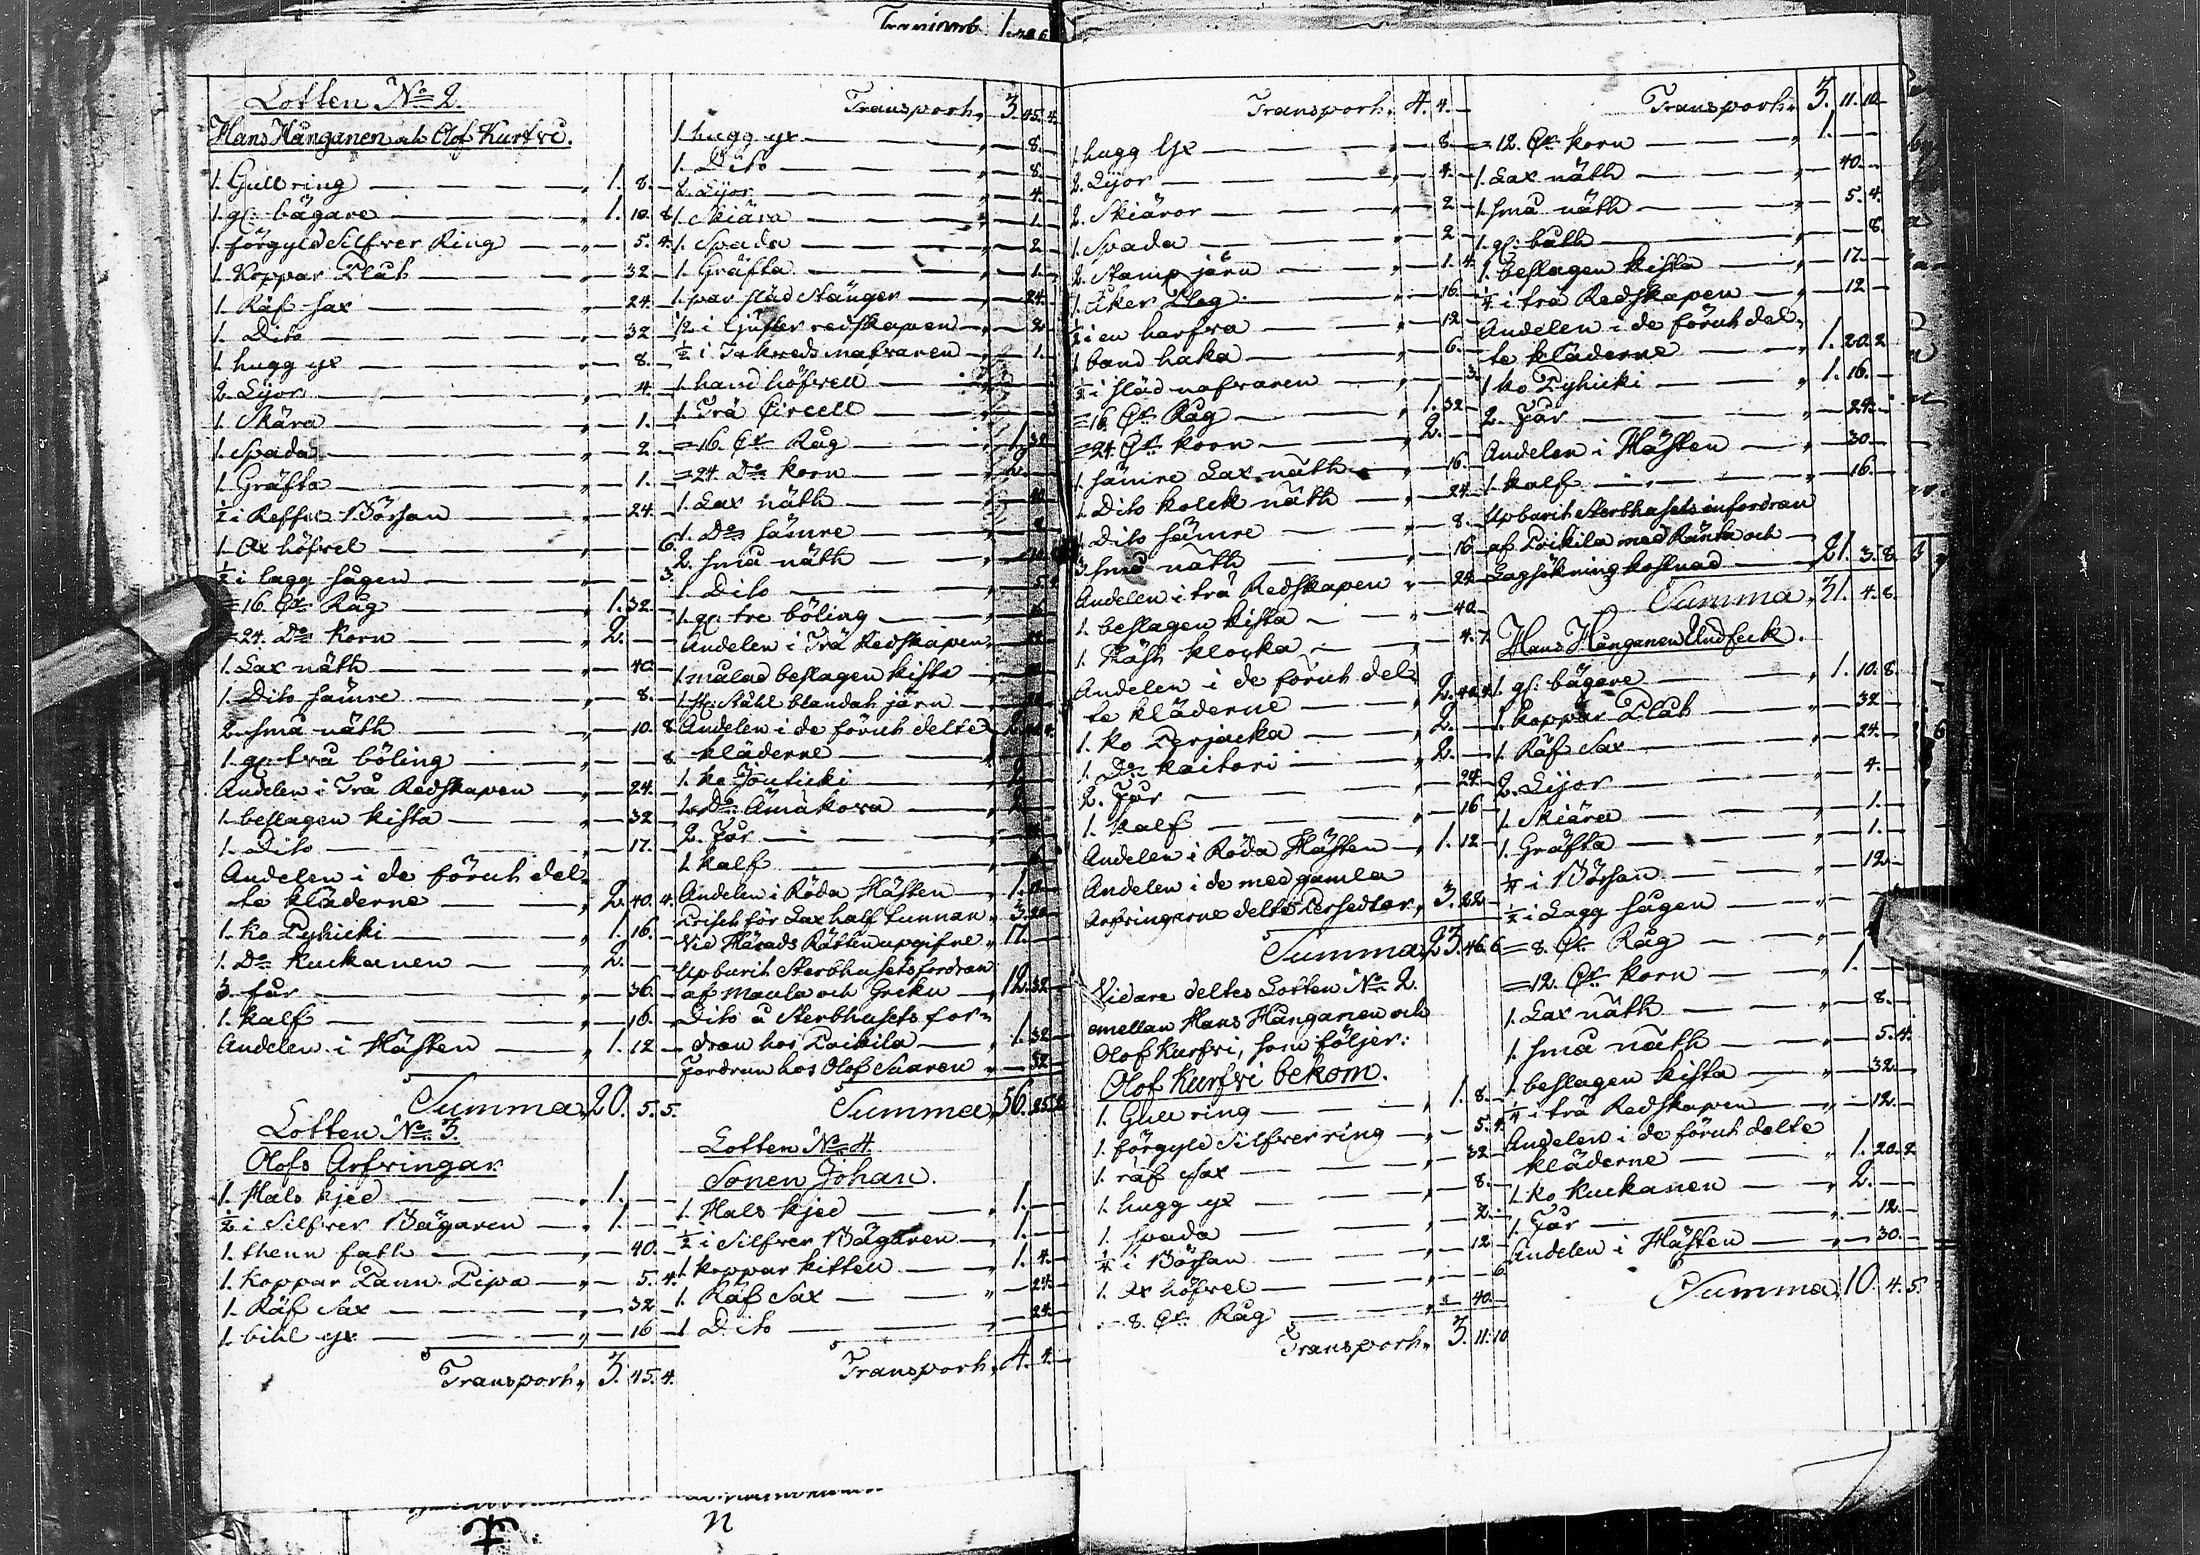 Lotten No 2.
Hans Hånganen och Olof Kurfvi.
1. Gullring — " 1. 8. —
1. gl: bägare — " 1. 10. 8
1. förgyld Silfver Ring — " — 5. 4.
1. Koppar Plåt — " — 32 —
1. Räf sax — " — 24. —
1. Dito — " — 32 —
1. hugg yx — " — 8. —
2. Lijor — " — 4. —
1. Skära — " — 1. —
1. Spada — " — 2. —
1. Gräfta — " — 1. —
½ i Reffla Börsan — " — 24. —
1. Ox höfvel — " — — 6.
½ i lagg sågen — " — — 3.
= 16. Kr Råg — " 1. 32. —
= 24. Do Korn — " 2. — —
1. Lax näth — " — 40. —
1. Dito sämre — " — 8. —
2. små näth — " — 10. 8.
1. gl: två böling — " — — 8
Andelen i Trä Redskapen — " — 24. —
1. beslagen kista — " — 32 —
1. Dito — " — 17. —
Andelen i de förut del-
te kläderne — " 2. 40. 4.
1. ko Pyhicki — " 1. 16. —
1. Do Kuckanen — " 2. — —
3. får — " — 36. —
1. kalf — " — 16. —
Andelen i Hästen — " 1. 12 —
Summa 20. 5. 5.
Lotten No 3.
Olofs Arfvingar
1. Hals kjed — " 1. — —
½ i Silfver Bägaren — " 1. — —
1. thenn fath — " — 40. —
1. Koppar Pann Pipa — " — 5. 4.
1. Räf Sax — " — 32 —
1. bihl yx — " — 16 —
Transport " 3. 45. 4.
Transport " 3. 45. 4.
1. hugg yx — " — 8. —
1. Dito — " — 8. —
2. Lijor — " — 4. —
1. Skiära — " — 1. —
1. Spada — " — 2. —
1. Gräfta — " — 1. —
1. par släd Stänger — " — 24. —
½ i Ljuster redskapen — " — 2. —
½ i nafvaren — " — 1. —
1. hand höfvell —
1. Trä Circell —
= 16. Kr Råg — " 1. 32
= 24. Do korn — " 2. —
1. Lax näth —
1. Do sämre —
2. små näth —
1. Dito — 5. 4
1. gl: tre böling —
Andelen i Trä Redskapen
1. målad beslagen kista
1. st: Ståhl blandat järn
Andelen i de förut delte
kläderne —
1. ko Joulicki — 2
1. Do Ämäkorva — 2
2. Får —
1. kalf —
Andelen i Röda Hästen — " 1.
Priset för Lax half tunnan " 3.
Vid Härads Rätten upgifne " 17. —
Upburit Sterbhusets fordran
af Maula och Griku — " 12. 32
Dito å Sterbhusets for-
dran hos Poikila — " 1. 32
Fordran hos Olof Saaren " — 32
Summa " 56. 25.
Lotten No 4.
Sonen Johan.
1. Hals kjed — " 1. — —
½ i Silfver Bägaren — " 1. — —
1. koppar kittel — " 1. 4. —
1. Räf Sax — " — 24. —
1. Dito — " — 24. —
Transport " 4. 4. —
Transport " 4. 4. —
1. hugg Yx — " — 8. —
2. Lijor — " — 4. —
2. Skiäror — " — 2 —
1. Spada — " — 2. —
2. Stamp järn — " — 1. 4.
1. Åker Plog — " — 16. —
½ i en harfva — " — 12 —
1. band haka — " — 6. —
½ i släd nafvaren — " — — 3.
= 16. Kr Råg — " 1. 32 —
= 24. Kr korn — " 2. — —
1. sämre Lax näth — " — 16. —
1. Dito kolck näth — " — 24 —
1. Dito sämre — " — 8. —
3. små näth — " — 16 —
Andelen i trä Redskapen " — 24 —
1. beslagen kista — " — 40. —
1. Häst klocka — " — 4. 7.
Andelen i de förut del-
te kläderne — " 2. 40. 4.
1. ko Perjacka — " 2. — —
1. Do Kaitori — " 2. — —
2. Får — " — 24. —
1. Kalf — " — 16 —
Andelen i Röda Hästen — " 1. 12 —
Andelen i de med gamla
Arfvingarne delte Persedlar " 3. 22 —
Summa 23. 46. 6
Vidare deltes Lotten No 2.
emellan Hans Hånganen och
Olof Kurfvi, som följer:
Olof Kurfvi bekom.
1. Gull ring — " 1. 8. —
1. förgyld Silfver ring — " — 5. 4.
1. räf Sax — " — 32 —
1. hugg yx — " — 8. —
1. spada — " — 2. —
¼ i Börsan — " — 12 —
1. Ox höfvel — " — — 6.
= 8. Kr Råg — " — 40. —
Transport " 3. 11. 10
Transport " 3. 11. 10
= 12. Kr korn — " 1. — —
1. Lax näth — " — 40. —
1. små näth — " — 5. 4.
1. gl: båth — " — — 8.
1. beslagen kista — " — 17. —
¼ i trä Redskapen — " — 12 —
Andelen i de förut del-
te kläderne — " 1. 20. 2
1. ko Pyhicki — " 1. 16. —
2. Får — " — 24. —
Andelen i Hästen — " — 30. —
1. kalf — " — 16. —
Upburit Sterbhusets infordran
af Poikila med Ränta och
Lagsökning kostnad — 21. 3. 8.
Summa " 31. 4. 8.
Hans Hånganen Undfeck.
1. gl: bägare — " 1. 10. 8.
1. koppar Plåt — " — 32 —
1. Räf Sax — " — 24. —
2. Lijor — " — 4. —
1. Skiära — " — 1. —
1. Gräfta — " — 1. —
¼ i Börsan — " — 12 —
½ i Lagg sågen —
= 8. Kr Råg —
= 12. Kr korn — " 1. —
1. Lax näth — " — 8. —
1. små näth — " — 5. 4.
1. beslagen kista — " — 32 —
¼ i trä Redskapen — " — 12. —
Andelen i de förut delte
kläderne — " 1. 20. 2
1. ko Kuckanen — " 2. — —
1. Får — " — 12. —
Andelen i Hästen — " — 30. —
Summa 10. 4. 5.